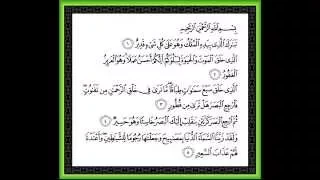 بِسْمِ اللَّهِ الرَّحْمَٰنِ الرَّحِيمِ
تَبَارَكَ الَّذِي بِيَدِهِ الْمُلْكُ وَهُوَ عَلَىٰ كُلِّ شَيْءٍ قَدِيرٌ ١
الَّذِي خَلَقَ الْمَوْتَ وَالْحَيَاةَ لِيَبْلُوَكُمْ أَيُّكُمْ أَحْسَنُ عَمَلًا وَهُوَ الْعَزِيزُ
الْغَفُورُ ٢
الَّذِي خَلَقَ سَبْعَ سَمَاوَاتٍ طِبَاقًا مَا تَرَىٰ فِي خَلْقِ الرَّحْمَٰنِ مِنْ تَفَاوُتٍ
فَارْجِعِ الْبَصَرَ هَلْ تَرَىٰ مِنْ فُطُورٍ ٣
ثُمَّ ارْجِعِ الْبَصَرَ كَرَّتَيْنِ يَنْقَلِبْ إِلَيْكَ الْبَصَرُ خَاسِئًا وَهُوَ حَسِيرٌ ٤
وَلَقَدْ زَيَّنَّا السَّمَاءَ الدُّنْيَا بِمَصَابِيحَ وَجَعَلْنَاهَا رُجُومًا لِلشَّيَاطِينِ وَأَعْتَدْنَا
لَهُمْ عَذَابَ السَّعِيرِ ٥